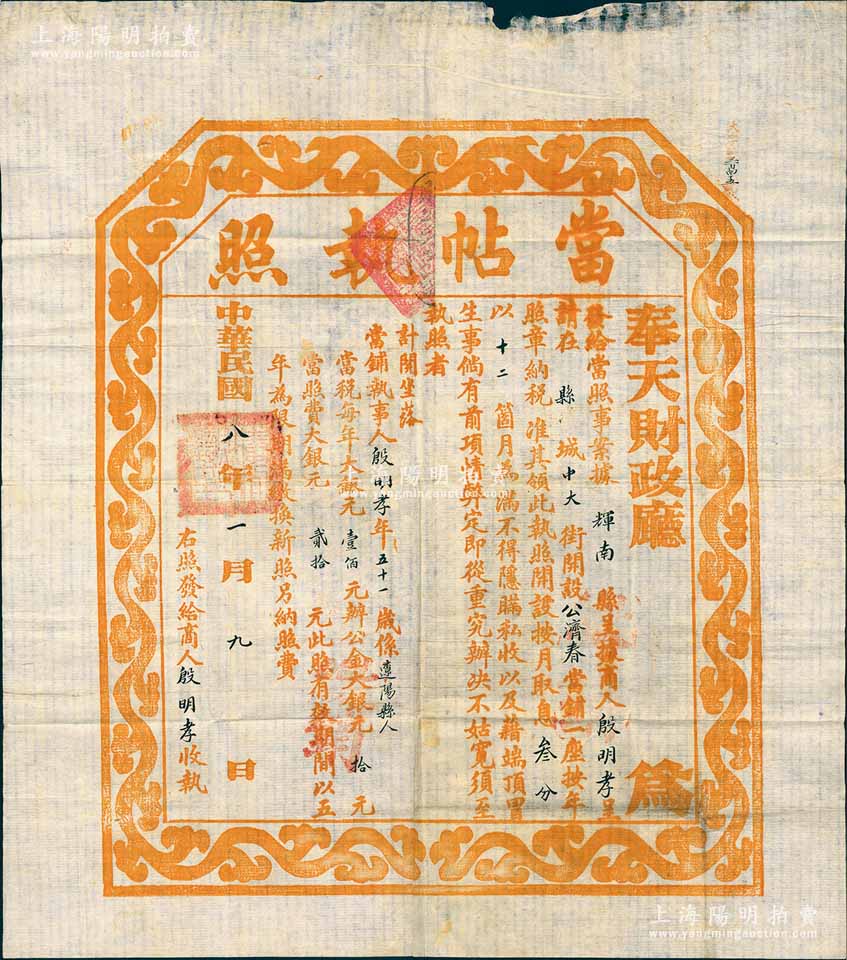 上海陽明拍賣
www.yangmingauction.com
當帖執照
奉天財政廳為
發給當照事案據輝南縣呈據商人殷明孝呈
請在縣城中大街開設公濟春當鋪一座按年
照章納稅准其領此執照開設按月取息叁分
以十二箇月為滿不得隱瞞私收以及藉端頂冒
生事倘有前項情弊定即從重究辦決不姑寬須至
執照者
計開坐落
當鋪執事人殷明孝年五十一歲係遼陽縣人
當稅每年大銀元壹佰元辦公金大銀元拾元
當照費大銀元貳拾元此照有效期間以五
年為限期滿繳換新照另納照費
右照發給商人殷明孝收執
中華民國八年一月九日
上海陽明拍賣
www.yangmingauction.com
上海陽明拍賣
www.yangmingauction.com